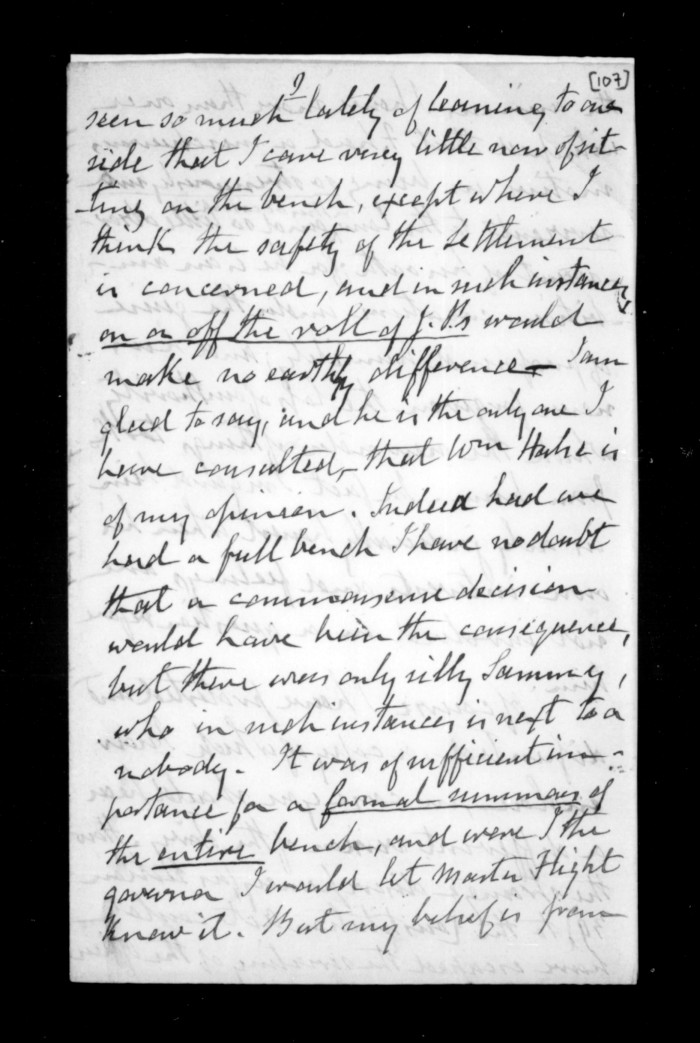 [107]
I
seen so much lately of leaning to one
side that I care very little now of sit-
-ting on the bench, except where I
think the safety of the Settlement
is concerned, and in such instances,
on or off the roll of J.P.s would
make no earthly difference - I am
glad to say, and he is the only one I
have consulted, that Wm Halse is
of my opinion. Indeed had we
had a full bench I have no doubt
that a commonsense decision
would have been the consequence,
but there was only silly Sammy,
who in such instances is next to a
nobody. It was of sufficient im-
portance for a formal summons of
the entire bench, and were I the
governor I would let Master Flight
know it. But my belief is from